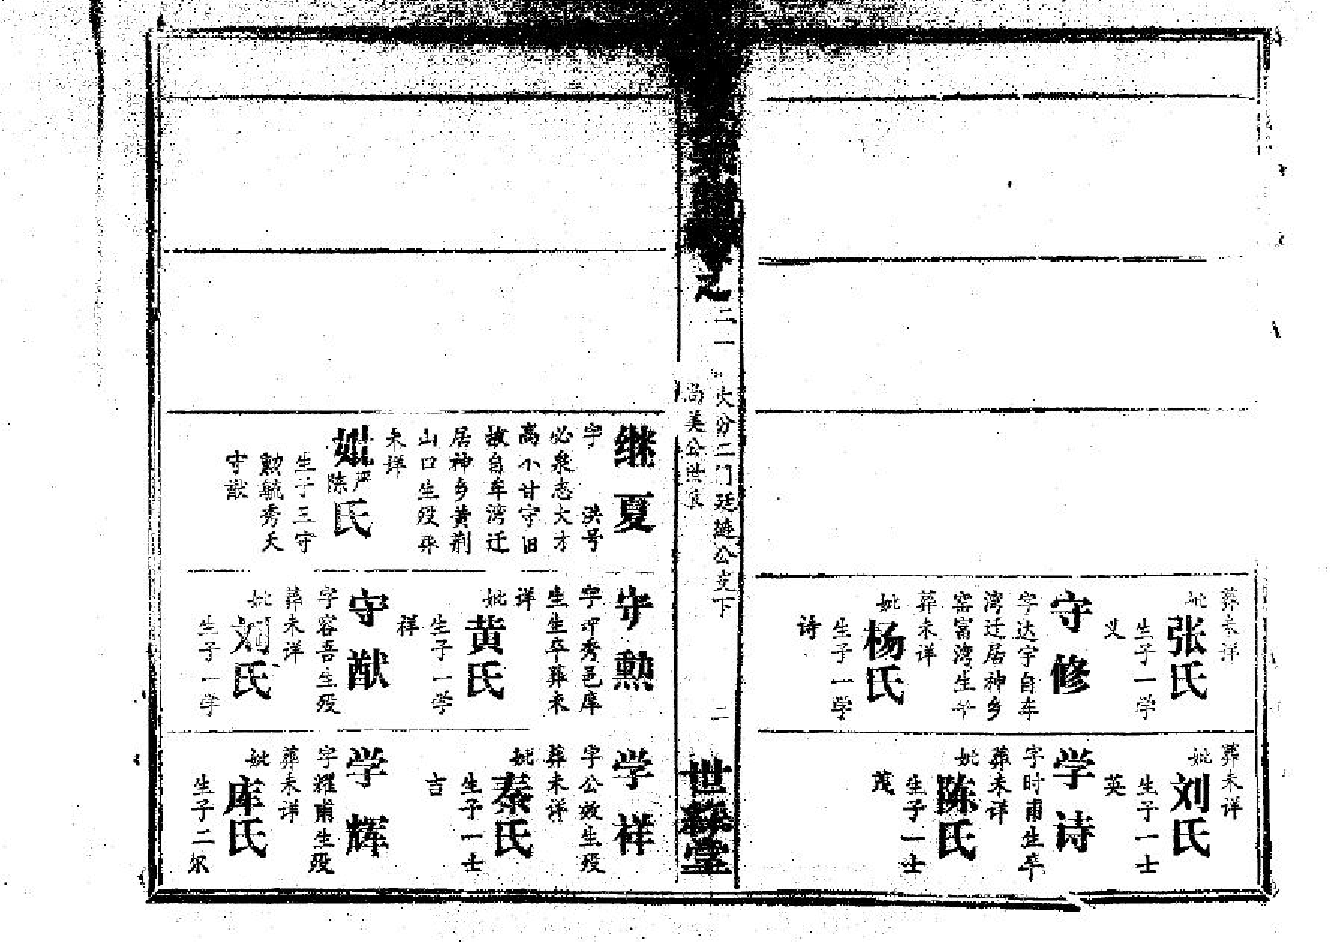 葬未详
妣
张氏
生子一学
义
守修
字达宇自车
湾迁居神乡
窑富湾生卒
葬未详
妣
杨氏
生子一学
诗
葬未详
妣
刘氏
生子一士
英
学诗
字时甫生卒
葬未详
妣
陈氏
生子一士
茂
之
二一
大分二门廷琏公支下
美公
二
世
堂
继夏
字洪号
必泉志大方
高不甘守旧
故自车湾迁
居神乡黄荆
山口生殁葬
未详
妣
严
陈
氏
生子三守
勲毓秀夭
守猷
守勲
字 秀邑庠
生生卒葬未
详
妣
黄氏
生子一学
祥
守猷
字容吾生殁
葬未详
妣
刘氏
生子一学
学祥
字公 生殁
葬未详
妣
秦氏
生子一士
吉
学辉
字耀甫生殁
葬未详
妣
库氏
生子二